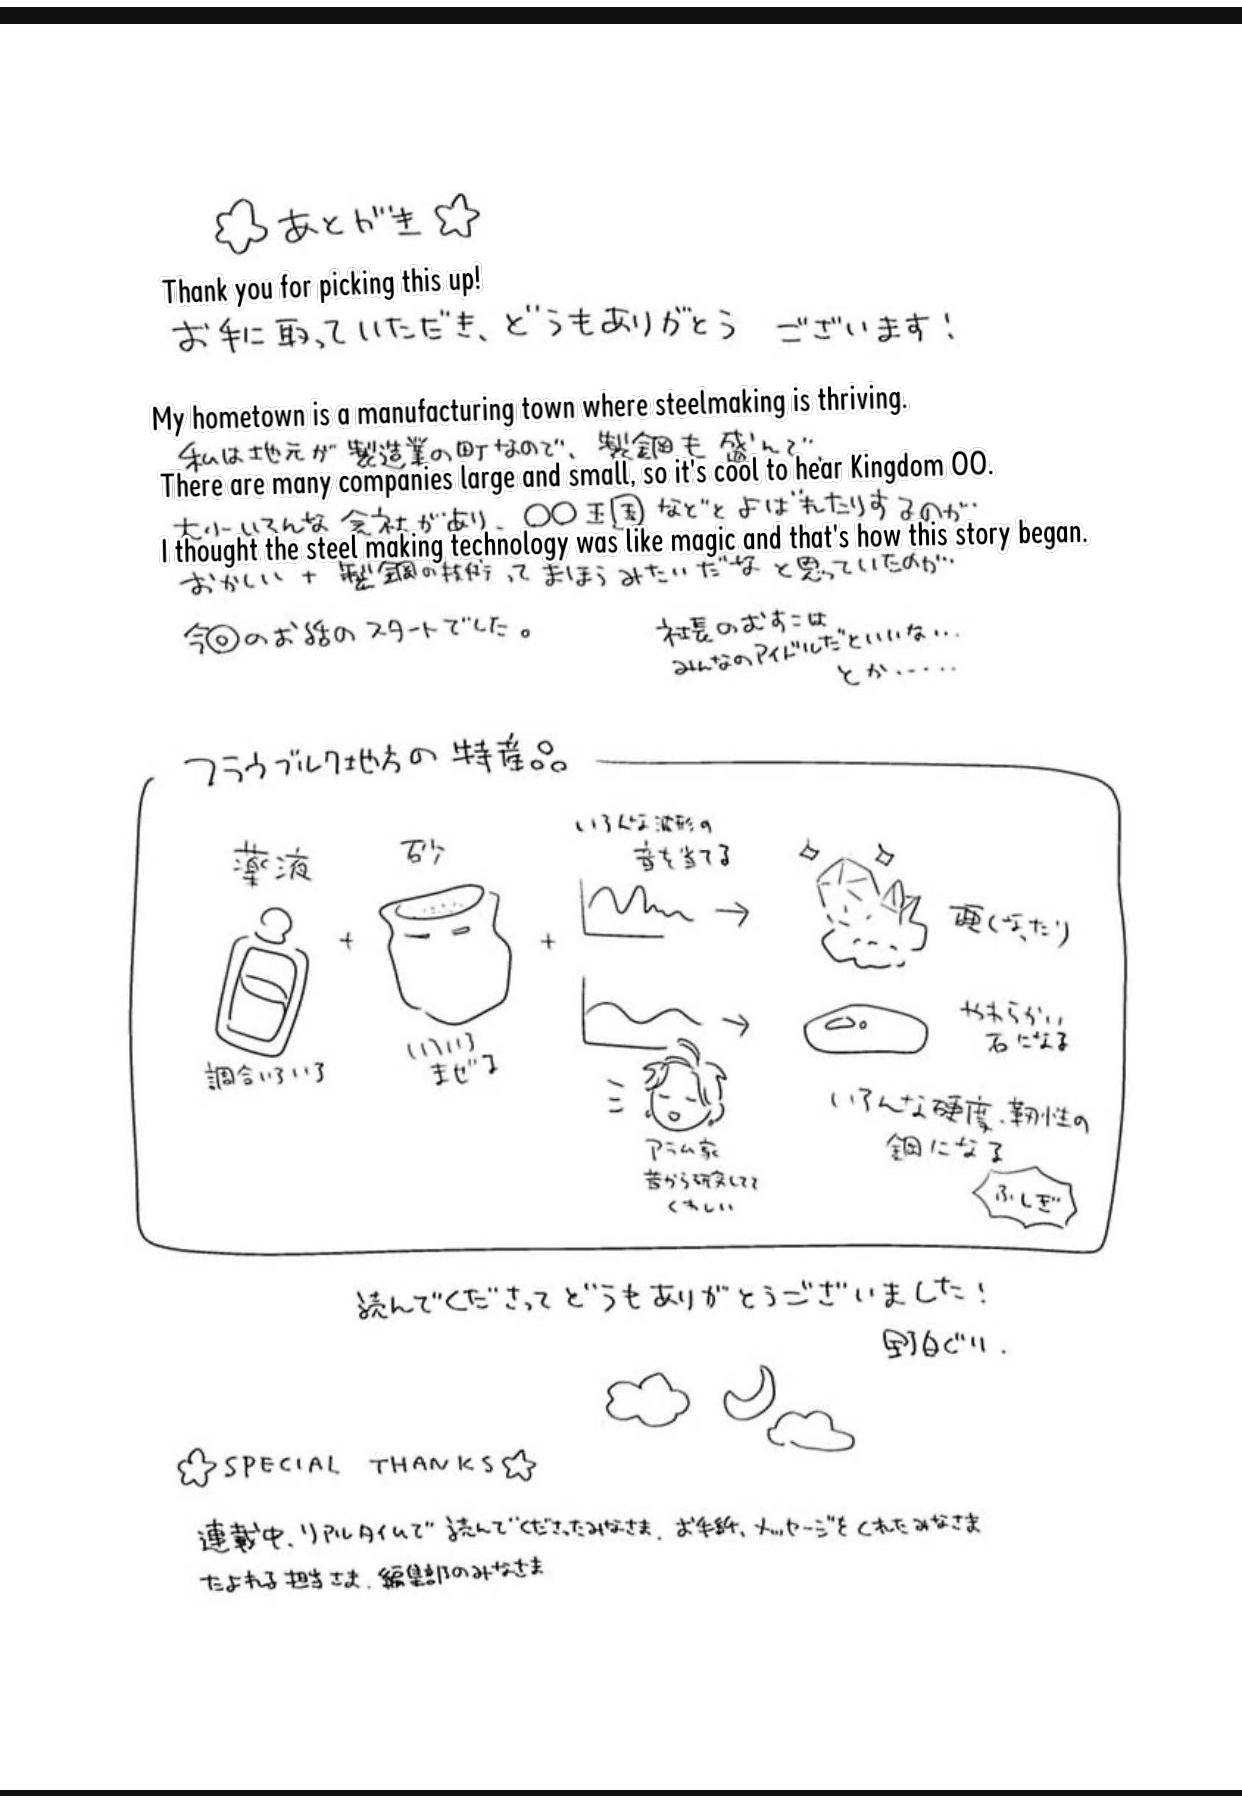 あとがき
Thank you for picking this up!
お手に取っていただき、どうもありがとう ございます!
My hometown is a manufacturing town where steelmaking is thriving.
私は地元が製造業の町なので、製鋼も盛んで、
There are many companies large and small, so it's cool to hear Kingdom OO.
大小いろんな会社があり、〇〇王国などとよばれたりするのが…
I thought the steel making technology was like magic and that's how this story began.
おかしい + 製鋼の技術ってまほうみたいだなと思っていたのが…
今回のお話のスタートでした。
社長のむすこは
みんなのアイドルだといいな…
とか……
フラウブルク地方の特産品
薬液
+
砂
+
いろんな波形の
音を当てる
硬くなったり
調合いろいろ
いろいろ
まぜる
やわらかい
石になる
アラム家
昔から研究してて
くわしい
いろんな硬度、靭性の
鋼になる
ふしぎ
読んでくださってどうもありがとうございました!
野白ぐり.
SPECIAL THANKS
連載中、リアルタイムで読んでくださったみなさま、お手紙、メッセージをくれたみなさま
たよれる担当さま、編集部のみなさま